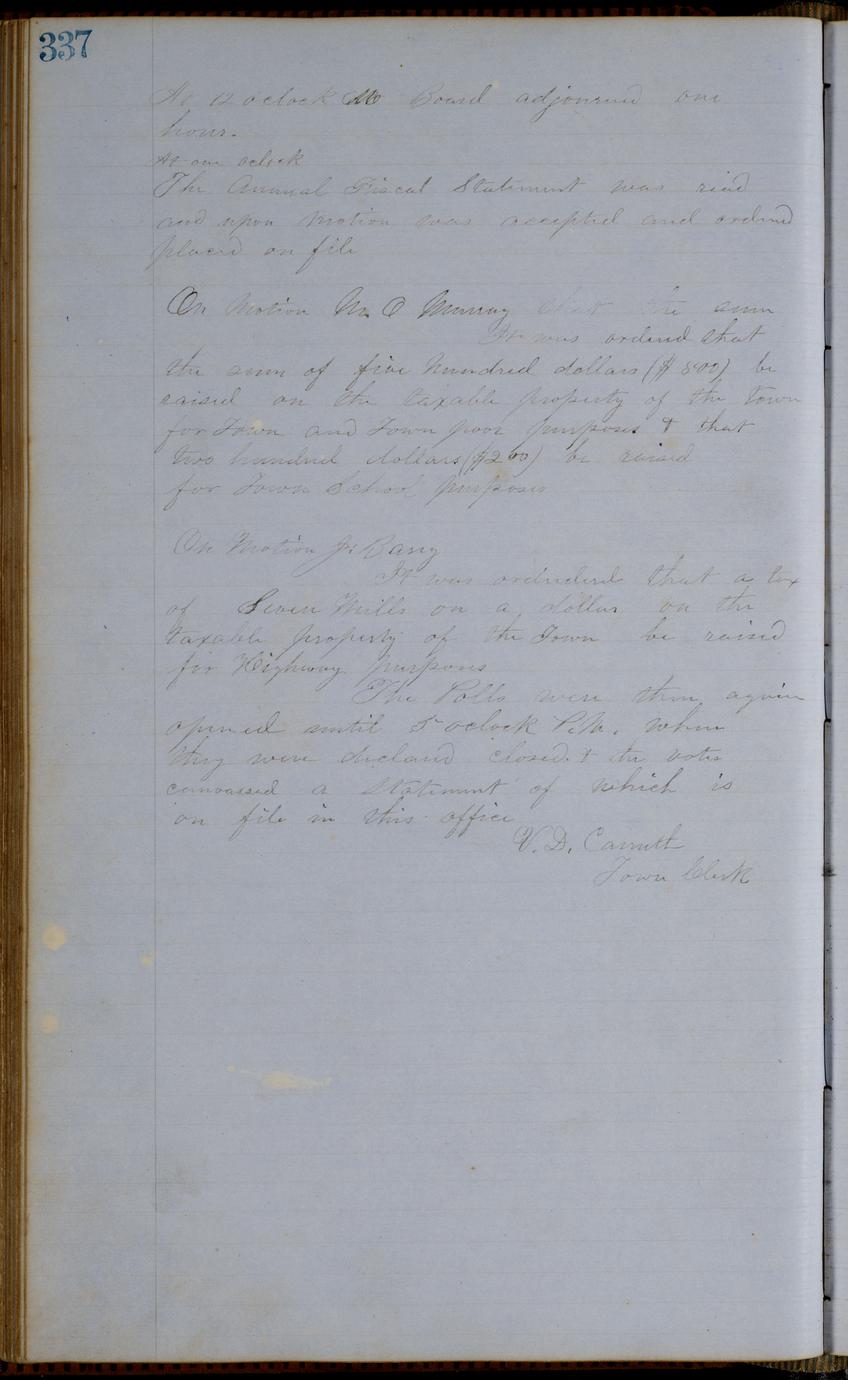 337
At 12 oclock M Board adjourned one
hour.
At one oclock
The Annual Fiscal Statement was read
and upon motion was accepted and ordered
placed on file
On Motion M. O Murray that the sum
It was ordered that
the sum of five hundred dollars ($500) be
raised on the taxable property of the town
for Town and Town poor purposes & that
two hundred dollars ($200) be raised
for Town School purposes
On Motion Jas Barry
It was ordndered that a tax
of Seven Mills on a dollar on the
taxable property of the Town be raised
for Highway purposes
The Polls were then again
opened until 5 oclock P.M. when
they were declared closed & the votes
canvassed a Statement of which is
on file in this office
V. D. Carruth
Town Clerk